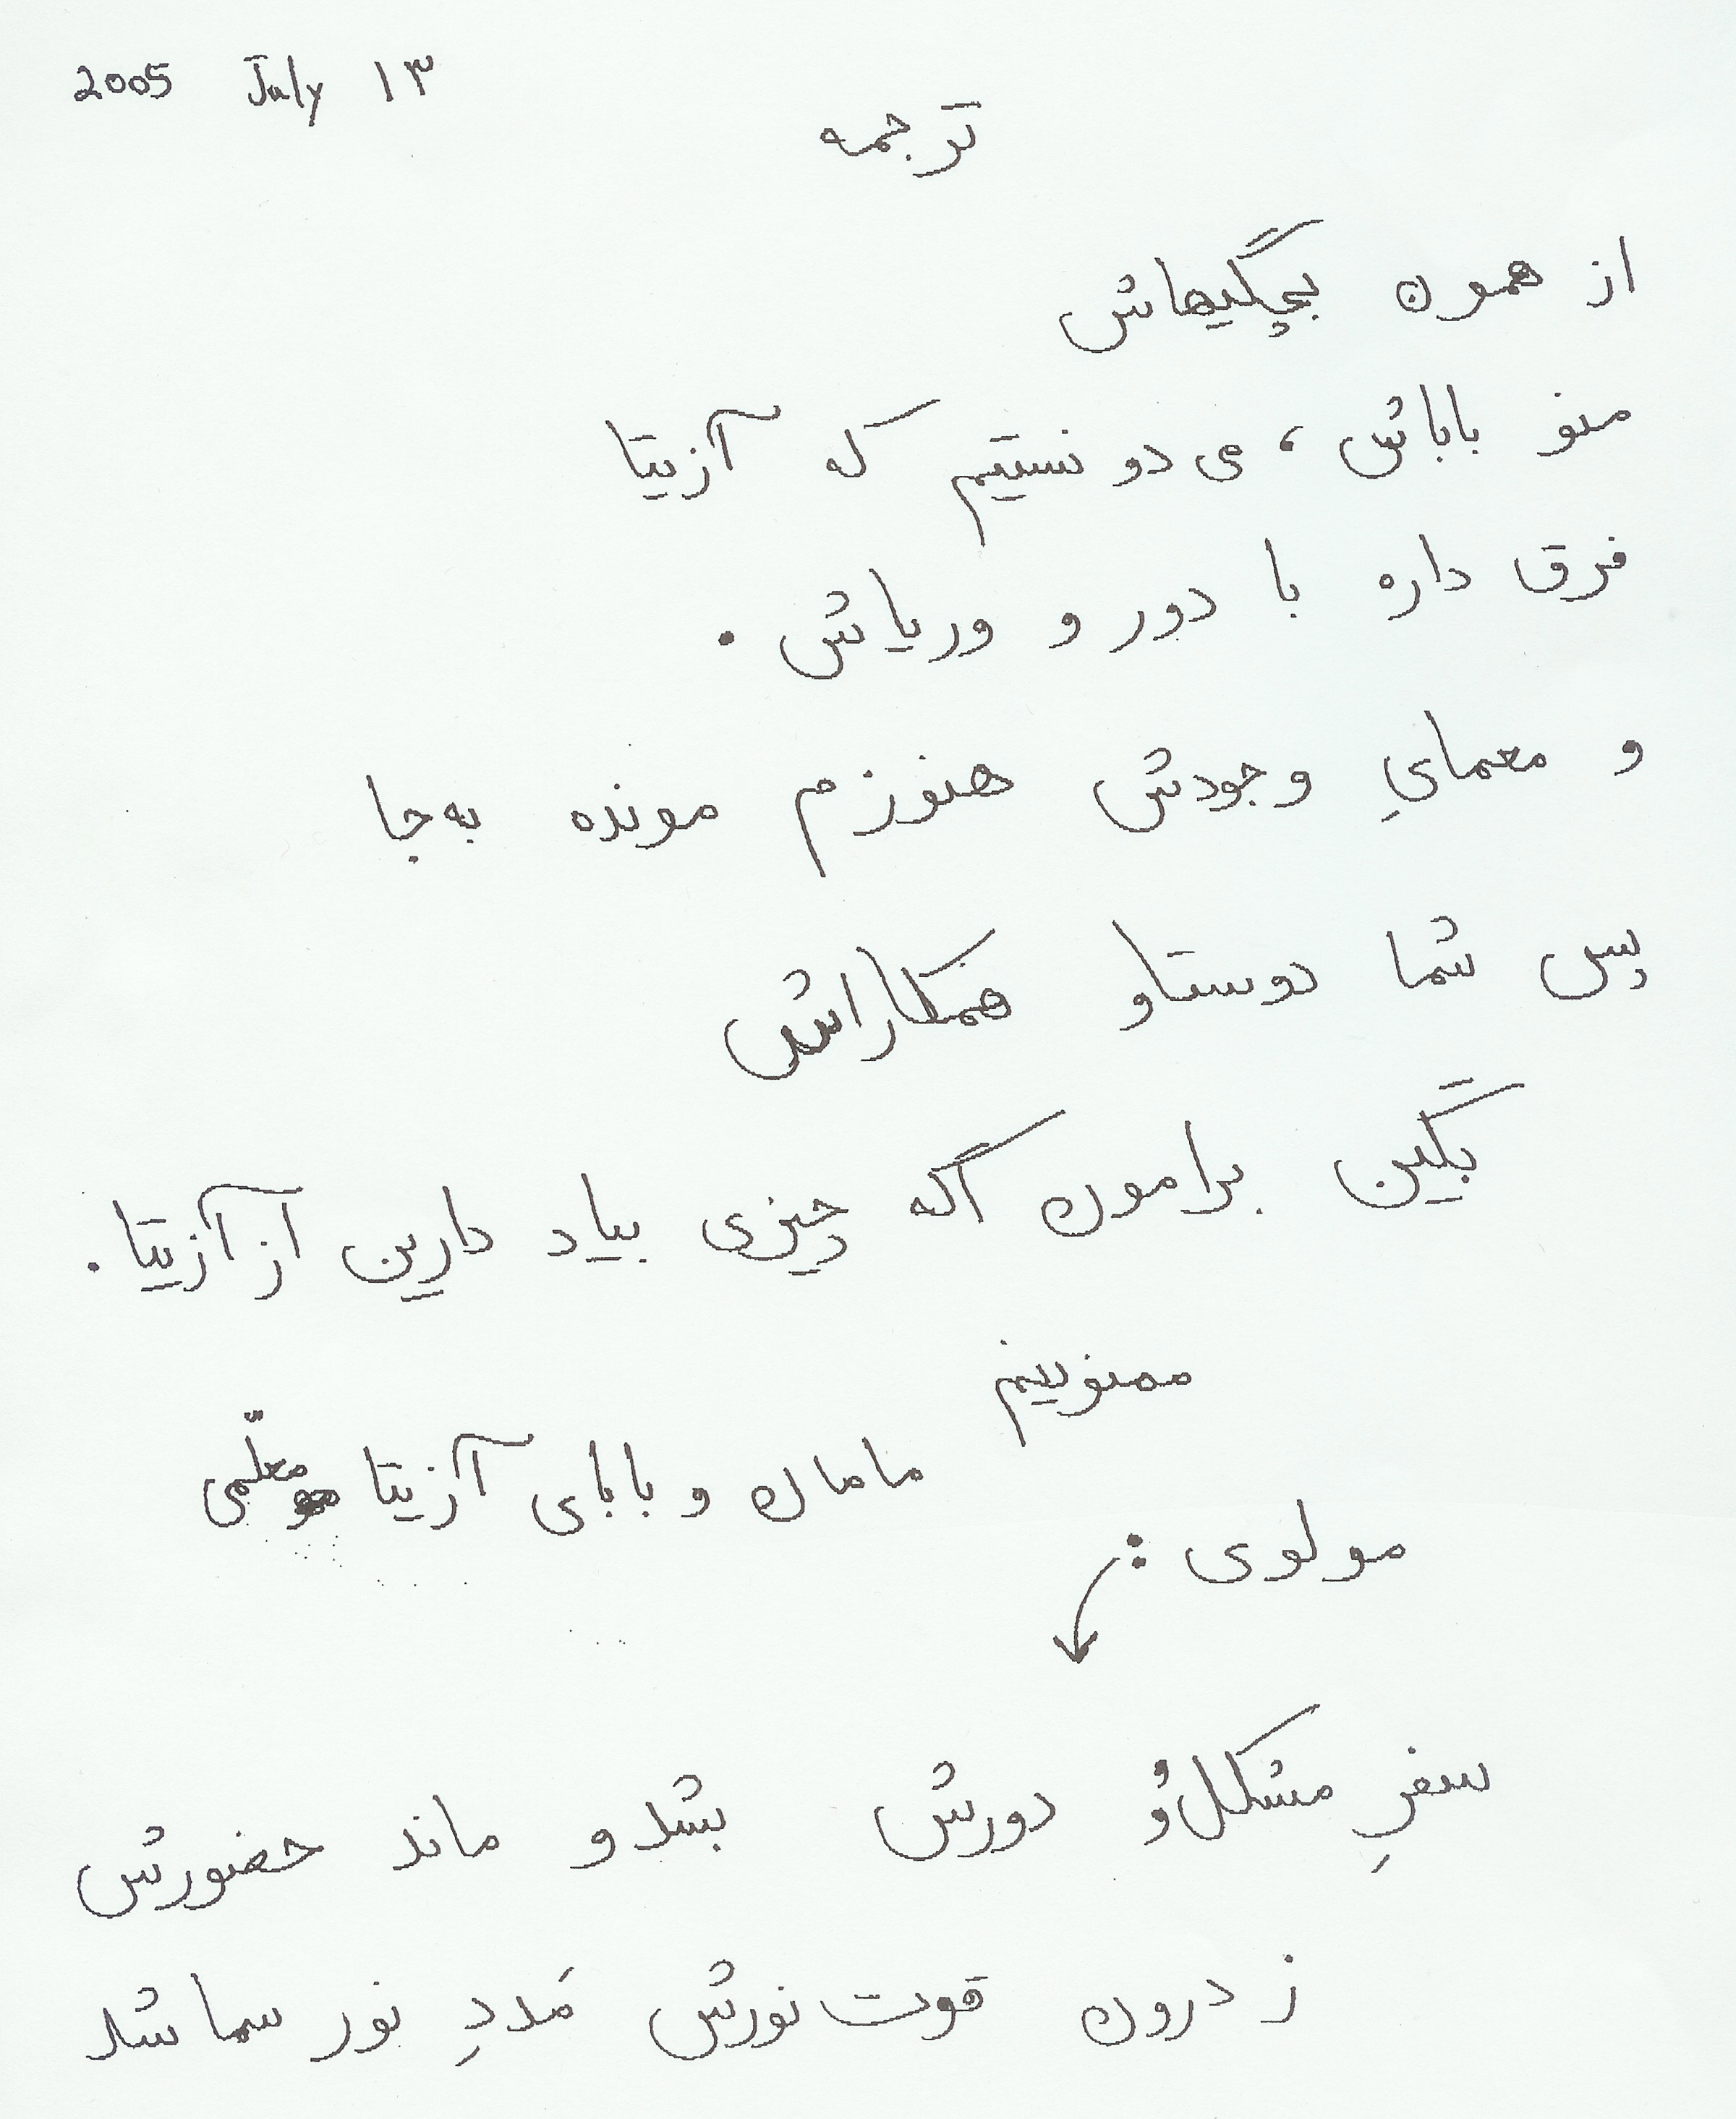 ۱۳ July 2005
ترجمه
از همون بچگیهاش
منو باباش، می دونستیم که آزیتا
فرق داره با دور و وریاش.
و معمایِ وجودش هنوزم مونده به جا
پس شما دوستاو همکاراش
بگین برامون اگه چیزی بیاد دارین از آزیتا.
ممنونیم
مامان و بابای آزیتا معلّمی
مولوی:
سفرِ مشکل وُ دورش بشد و ماند حضورش
ز درون قوت نورش مَددِ نور سما شد